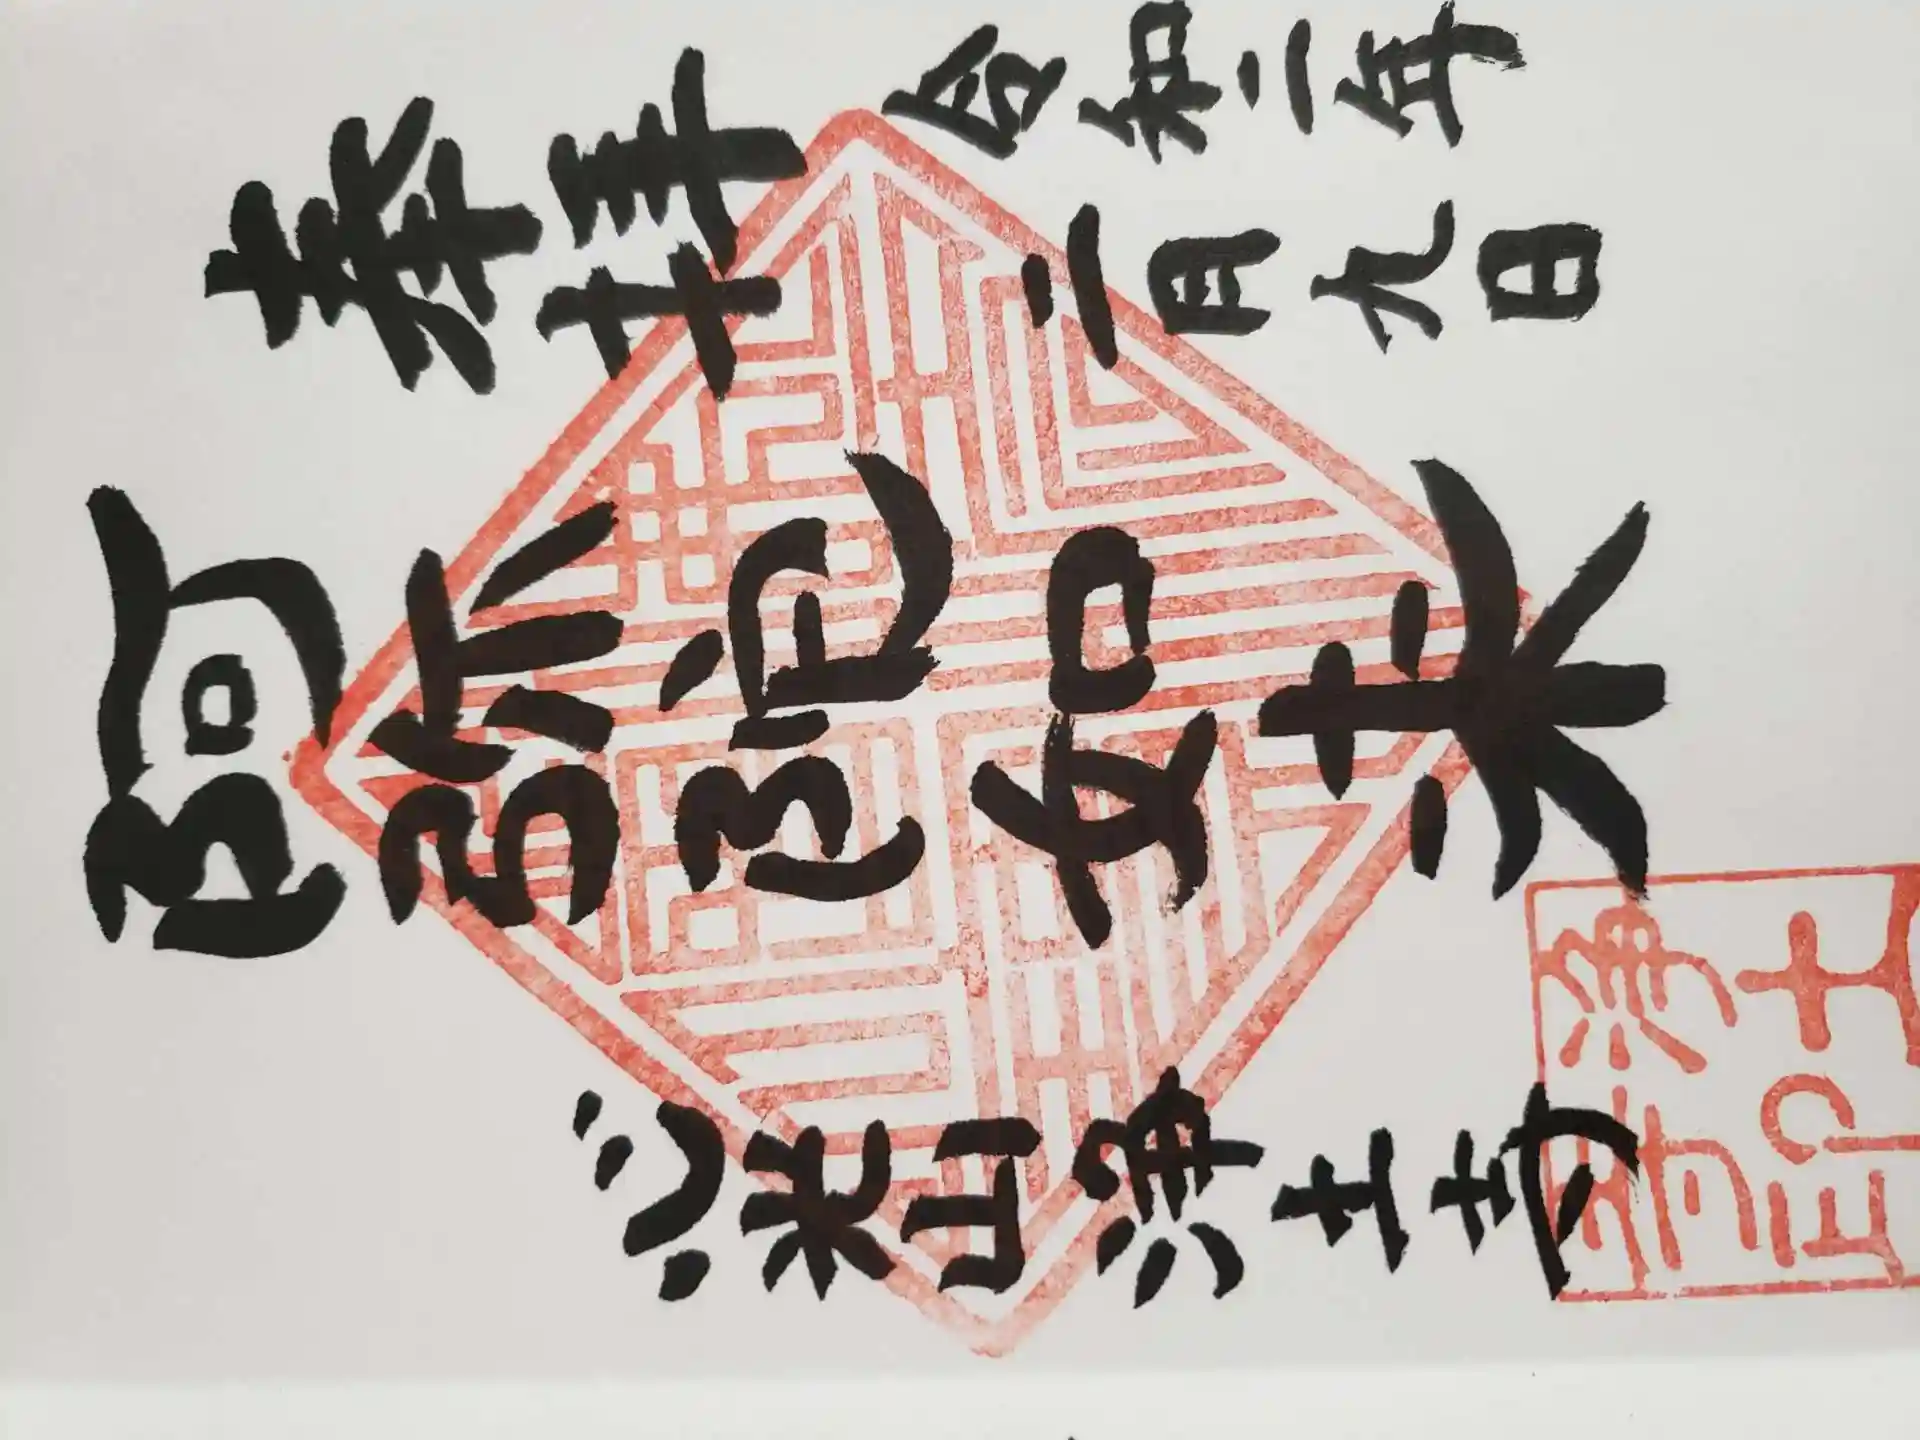 奉拝
令和二年
二月九日
阿弥陀如来
心光山浄土寺
浄土
寺印